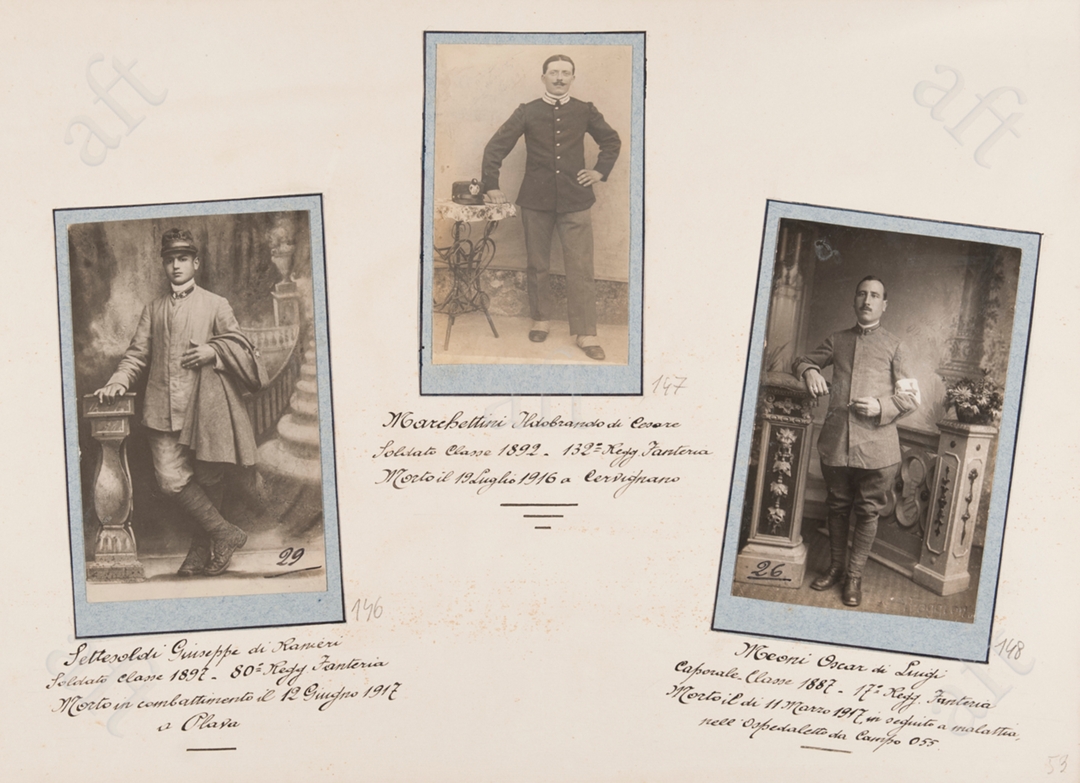 147
Marchettini Ildobrando di Cesare
Soldato Classe 1892 - 132º Regg Fanteria
Morto il 19 Luglio 1916 a Cervignano
29
146
Settesoldi Giuseppe di Ranieri
Soldato Classe 1897 - 80º Regg Fanteria
Morto in combattimento il 12 Giugno 1917
a Plava
26
148
Meoni Oscar di Luigi
Caporale Classe 1887 - 17º Regg. Fanteria
Morto il di 11 Marzo 1917, in seguito a malattia,
nell'Ospedaletto da Campo 055
53
aft
aft
aft